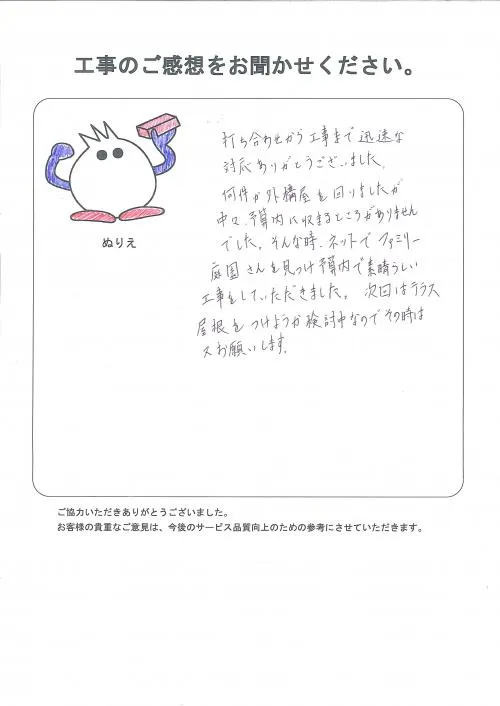 工事のご感想をお聞かせください。
打ち合わせから工事まで迅速な
対応ありがとうございました。
何件か外構屋を回りましたが
中々、予算内に収まるところがありません
でした。そんな時、ネットでファミリー
庭園さんを見つけ予算内で素晴らしい
工事をしていただきました。次回はテラス
屋根をつけようか検討中なのでその時は
又お願いします。
ぬりえ
ご協力いただきありがとうございました。
お客様の貴重なご意見は、今後のサービス品質向上のための参考にさせていただきます。